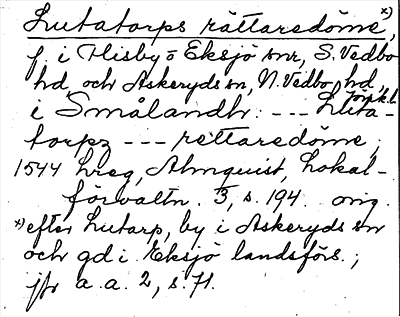 Lutatorps rättaredöme, x)
f. i Hisby o Eksjö snr, S. Vedbo
hd, och Askeryds sn, N. Vedbo hd,
i Smålandh: --- Luta-
torpz --- rettaredöme,
1544 hreg, Almquist, Lokal-
förvaltn. 3, s. 194. orig.
x) efter Lutarp, by i Askeryds sn
och gd i Eksjö landsförs.;
jfr a.a. 2, s. 71.